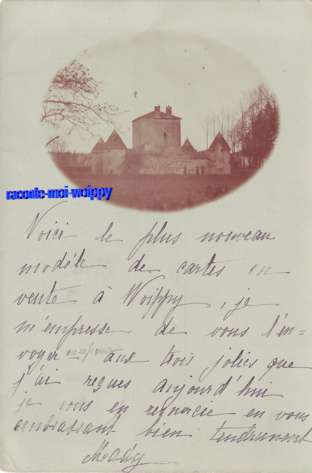 raconte-moi-woippy
Voici le plus nouveau
modèle de cartes en
vente à Woippy, je
m'empresse de vous l'en-
voyer aux trois jolies que
j'ai reçues aujourd'hui
je vous en remercie en vous
embrassant bien tendrement